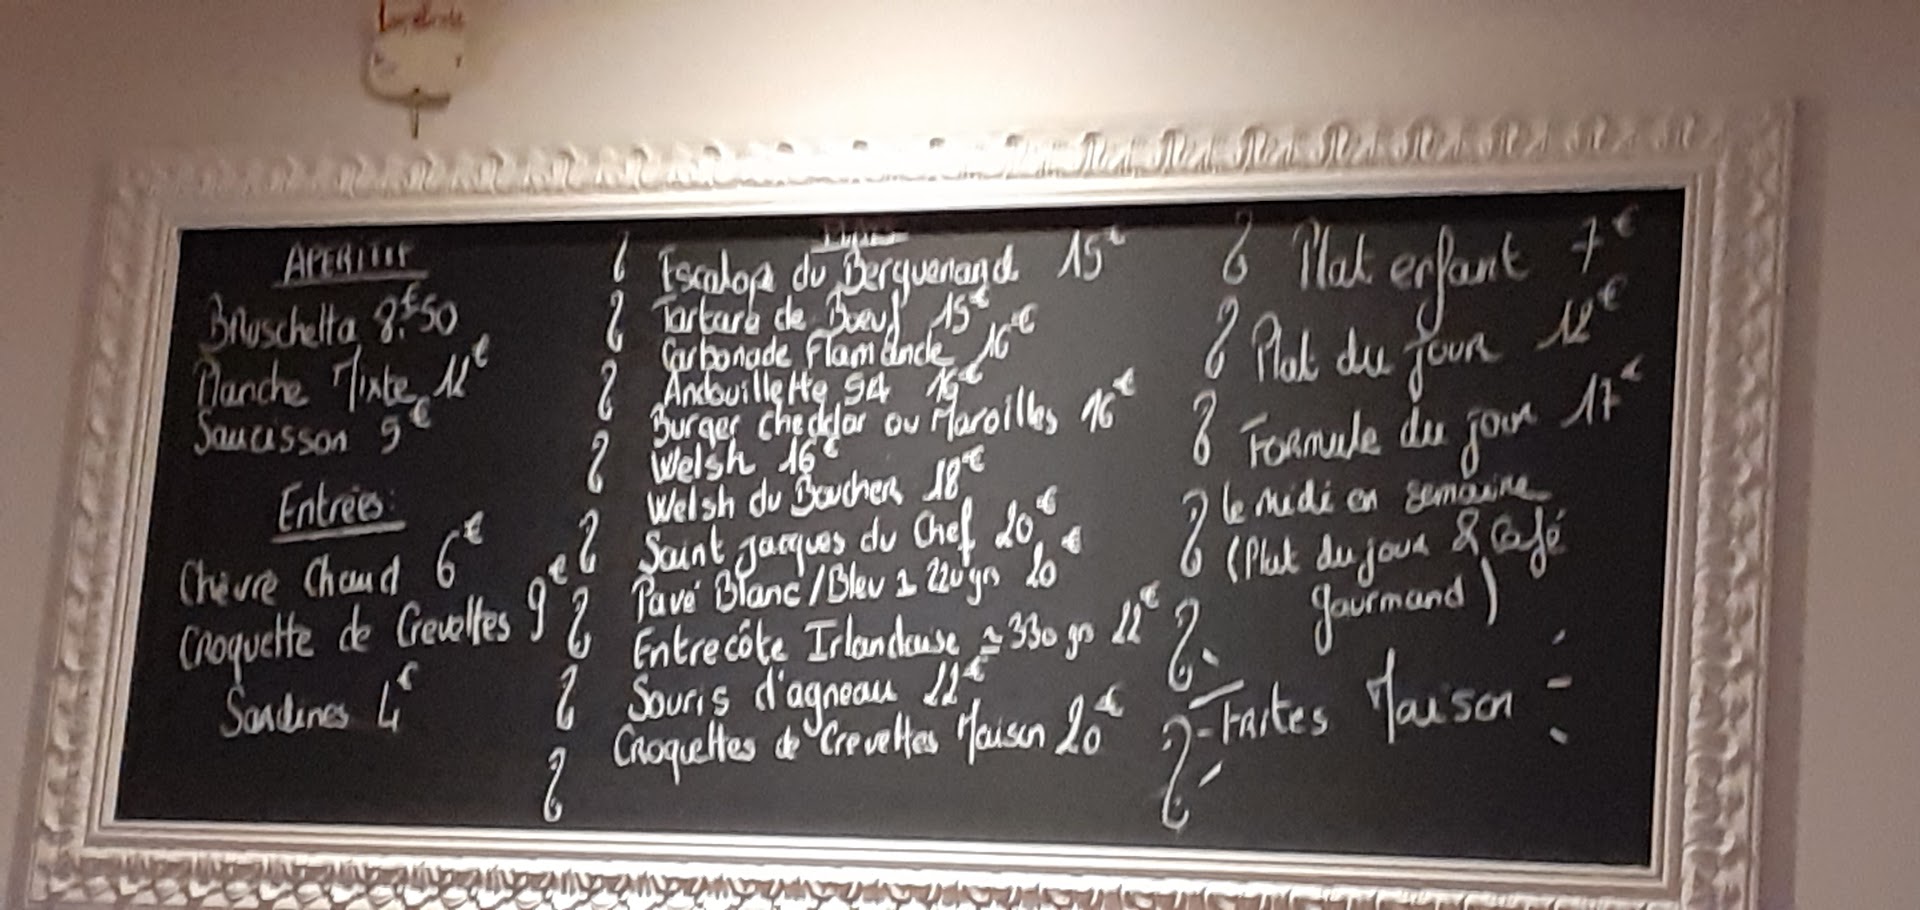 APERITIF
Bruschetta 8.€50
Planche Mixte 12€
Saucisson 9€
Entrées:
Chèvre Chaud 6€
Croquette de Crevettes 9€
Sardines 4€
Plats
Escalope du Berguenard 15€
Tartare de Boeuf 15€
Carbonade Flamande 16€
Andouillette 5A 16€
Burger cheddar ou Maroilles 16€
Welsh 16€
Welsh du Boucher 18€
Saint Jacques du Chef 20€
Pavé Blanc/Bleu ± 220grs 20€
Entrecôte Irlandaise ± 330 grs 22€
Souris d'agneau 22€
Croquettes de Crevettes Maison 20€
Plat enfant 7€
Plat du jour 12€
Formule du jour 17€
le midi en semaine
(Plat du jour & Café
gourmand)
- Frites Maison -